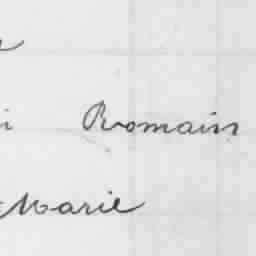 Romain
Marie